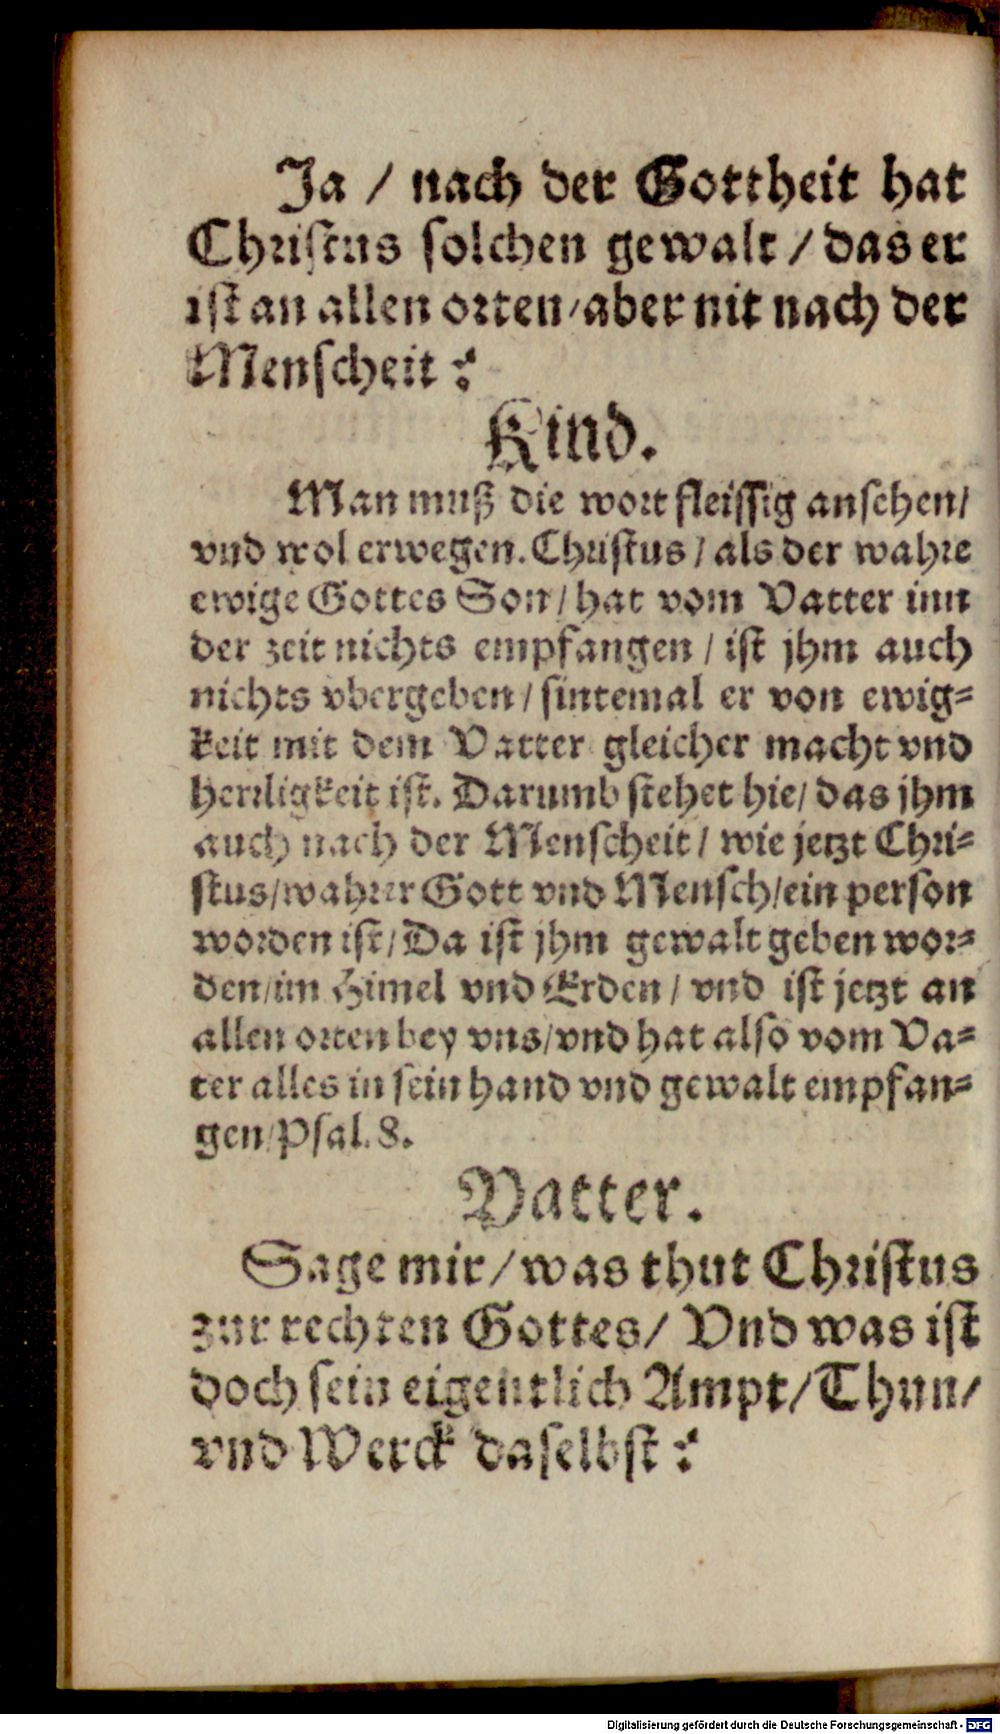 Ja / nach der Gottheit hat
Christus solchen gewalt / das er
ist an allen orten / aber nit nach der
Menscheit?
Kind.
Man muß die wort fleissig ansehen /
vnd wol erwegen. Christus / als der wahre
ewige Gottes Son / hat vom Vatter inn
der zeit nichts empfangen / ist jhm auch
nichts vbergeben / sintemal er von ewig=
keit mit dem Vatter gleicher macht vnd
herrligkeit ist. Darumb stehet hie / das jhm
auch nach der Menscheit / wie jetzt Chri=
stus / wahrer Gott vnd Mensch / ein person
worden ist / Da ist jhm gewalt geben wor=
den / im Himel vnd Erden / vnd ist jetzt an
allen orten bey vns / vnd hat also vom Va=
ter alles in sein hand vnd gewalt empfan=
gen / Psal. 8.
Vatter.
Sage mir / was thut Christus
zur rechten Gottes / Vnd was ist
doch sein eigentlich Ampt / Thun /
vnd Werck daselbst?
Digitalisierung gefördert durch die Deutsche Forschungsgemeinschaft - DFG